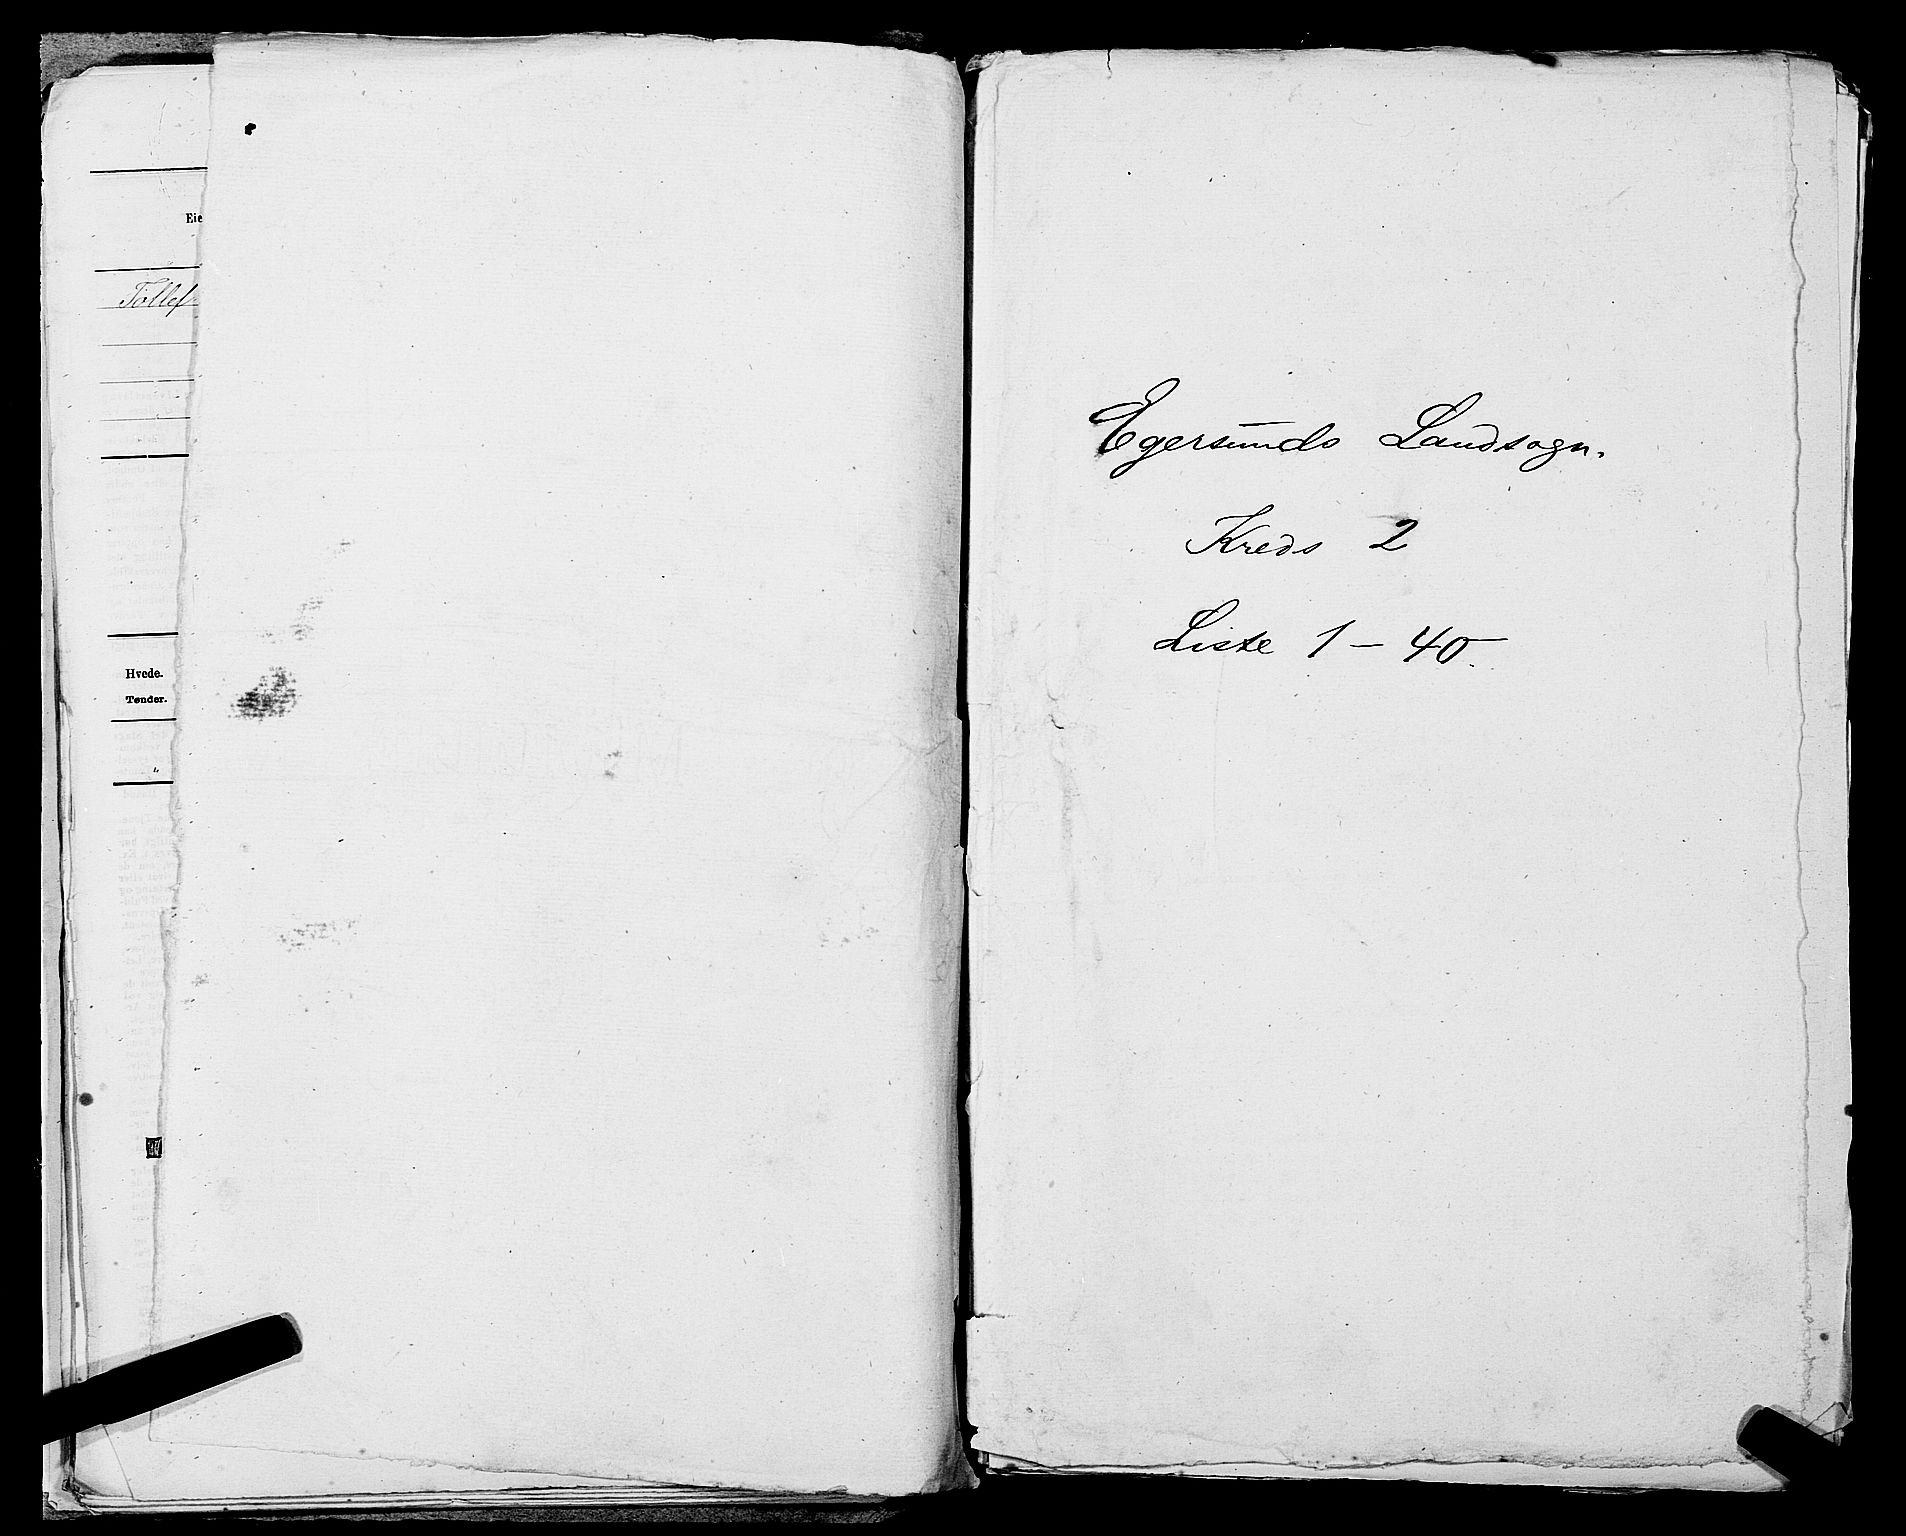 Eie
Tollef
Hvede.
Tønder.
Egersunds Landsogn.
Kreds 2
Liste 1 - 40.